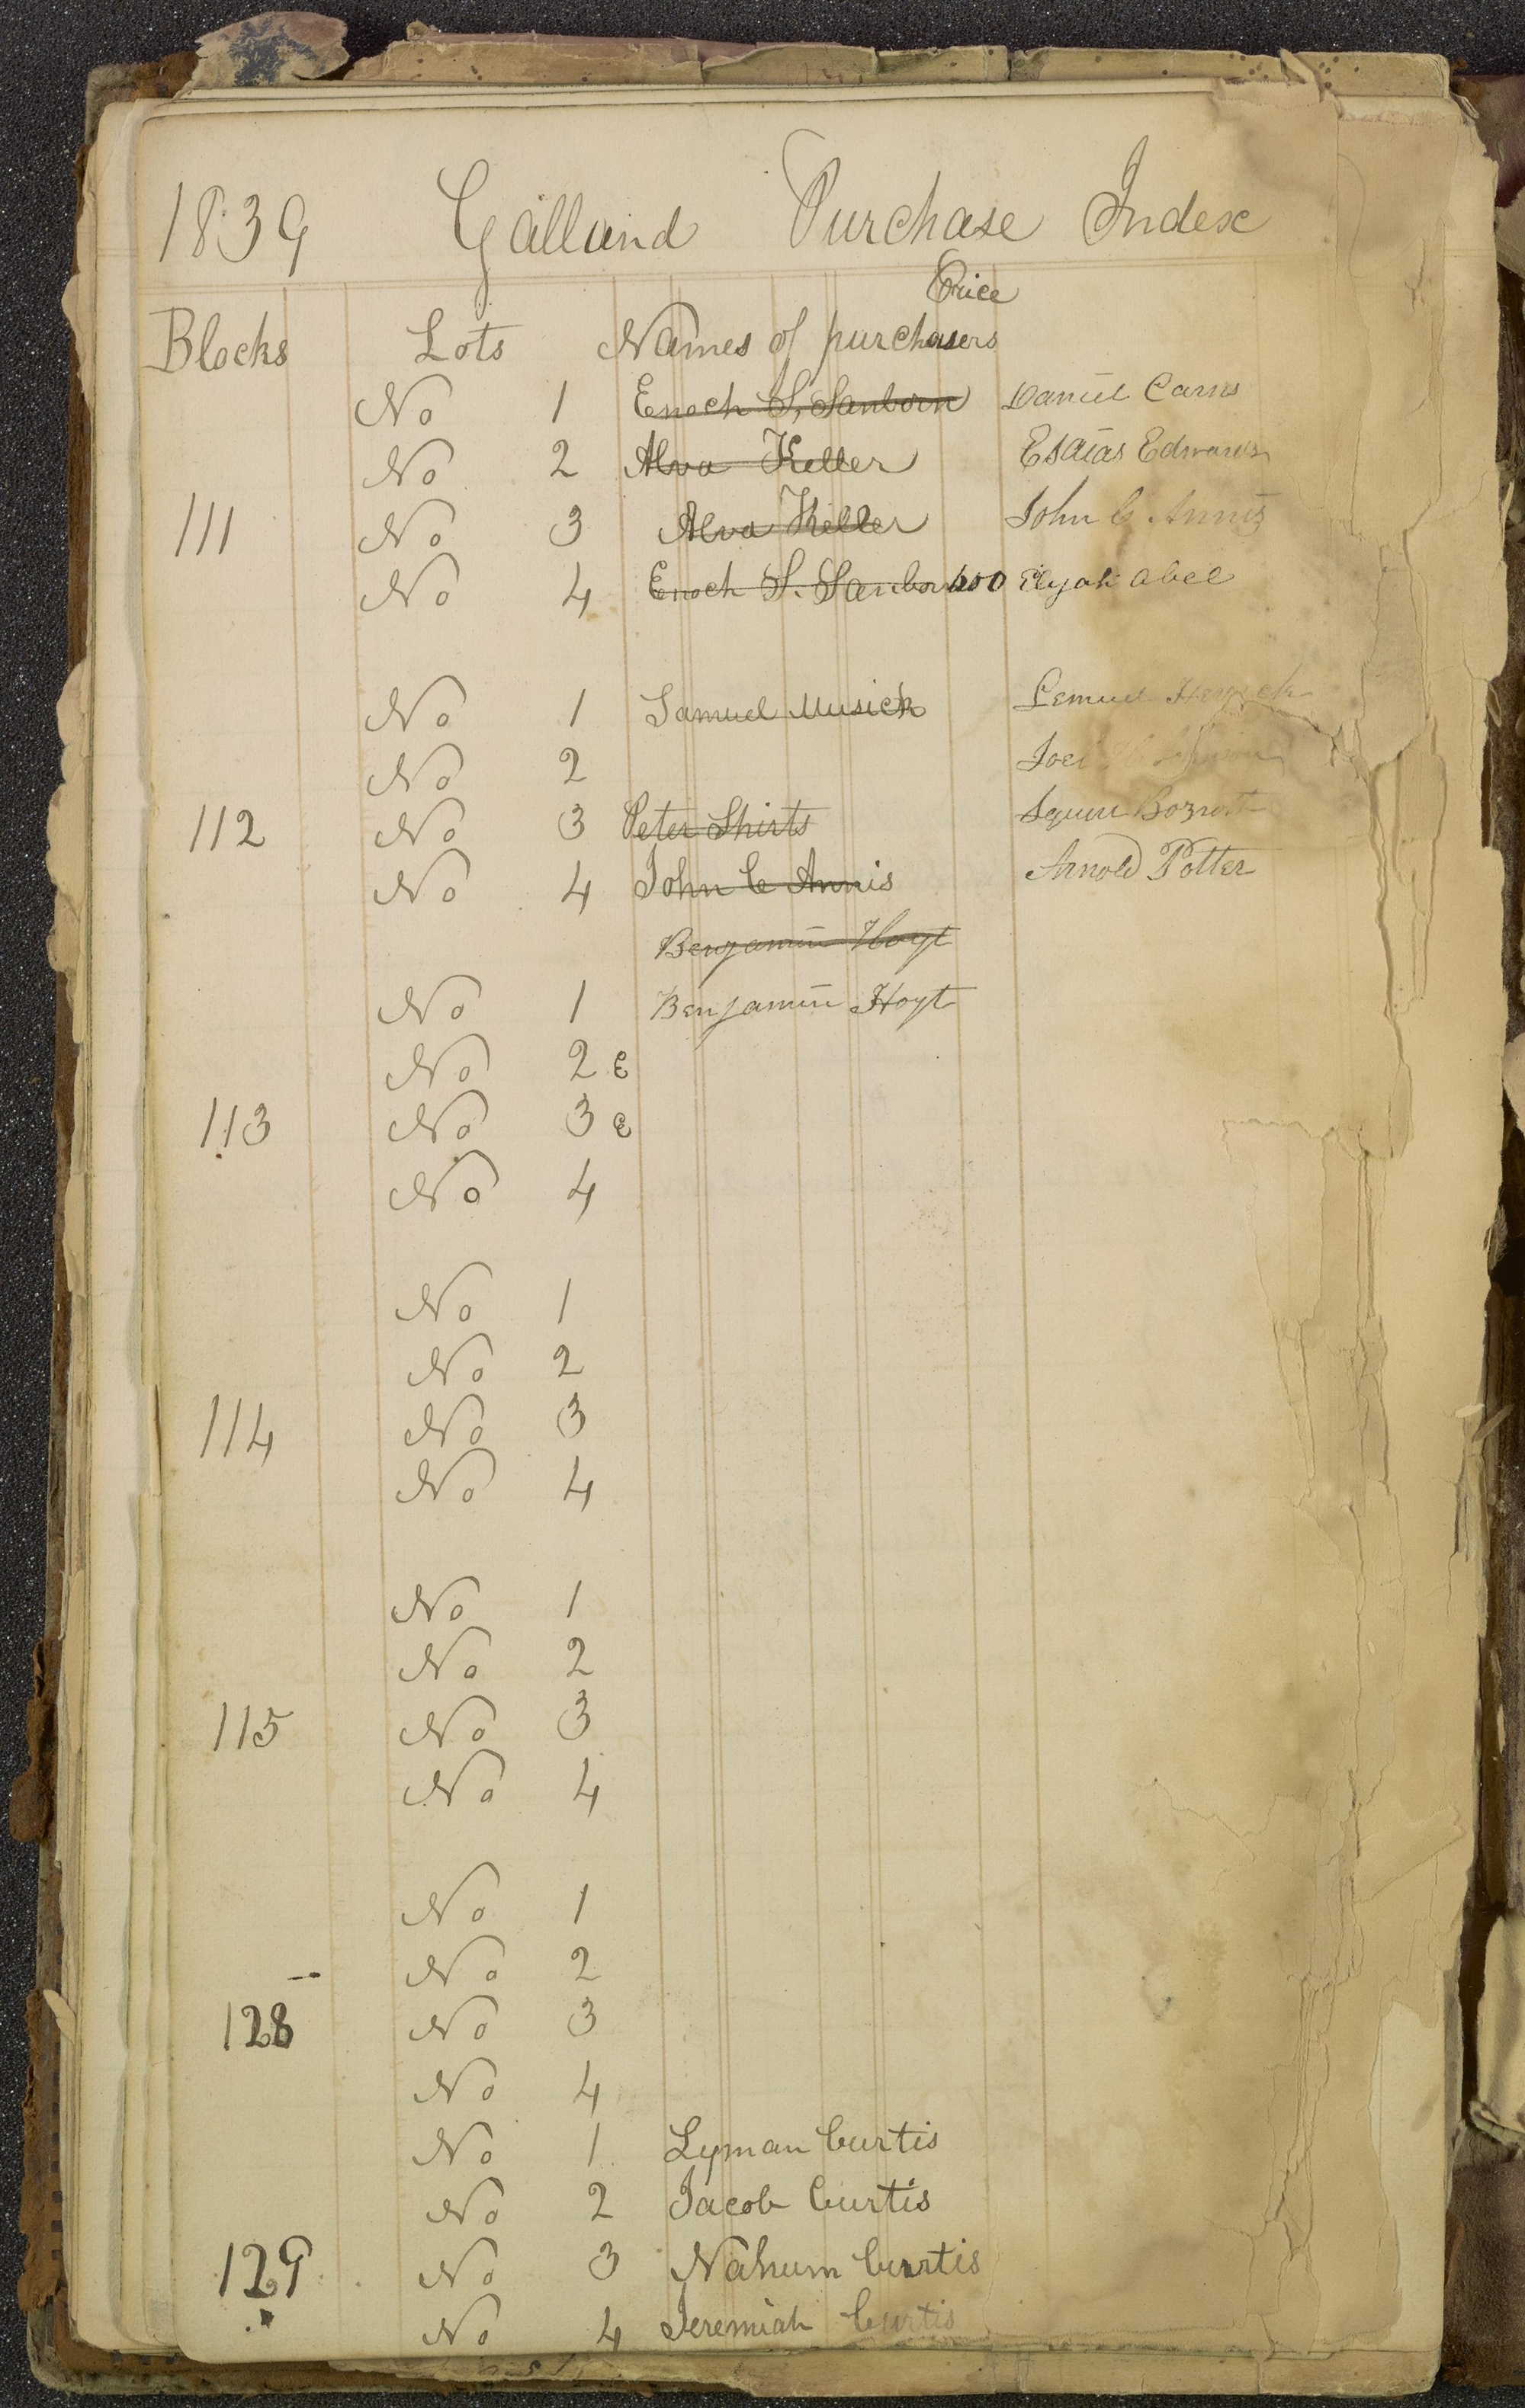 1839 Galland Purchase Index
Price
Blocks Lots Names of purchasers
No 1 Enoch S. Sanborn Daniel Carns
No 2 Alva Keller Esaias Edwards
111 No 3 Alva Keller John C Annis
No 4 Enoch S. Sanborn 400 Elijah Abel
No 1 Samuel Musick Lemuel
No 2 Joel
112 No 3 Peter Shirts Squire Bozwoth
No 4 John C Annis Arnold Potter
Benjamin Hoyt
No 1 Benjamin Hoyt
No 2 E
113 No 3 E
No 4
No 1
No 2
114 No 3
No 4
No 1
No 2
115 No 3
No 4
No 1
No 2
128 No 3
No 4
No 1 Lyman Curtis
No 2 Jacob Curtis
129 No 3 Nahum Curtis
No 4 Jeremiah Curtis